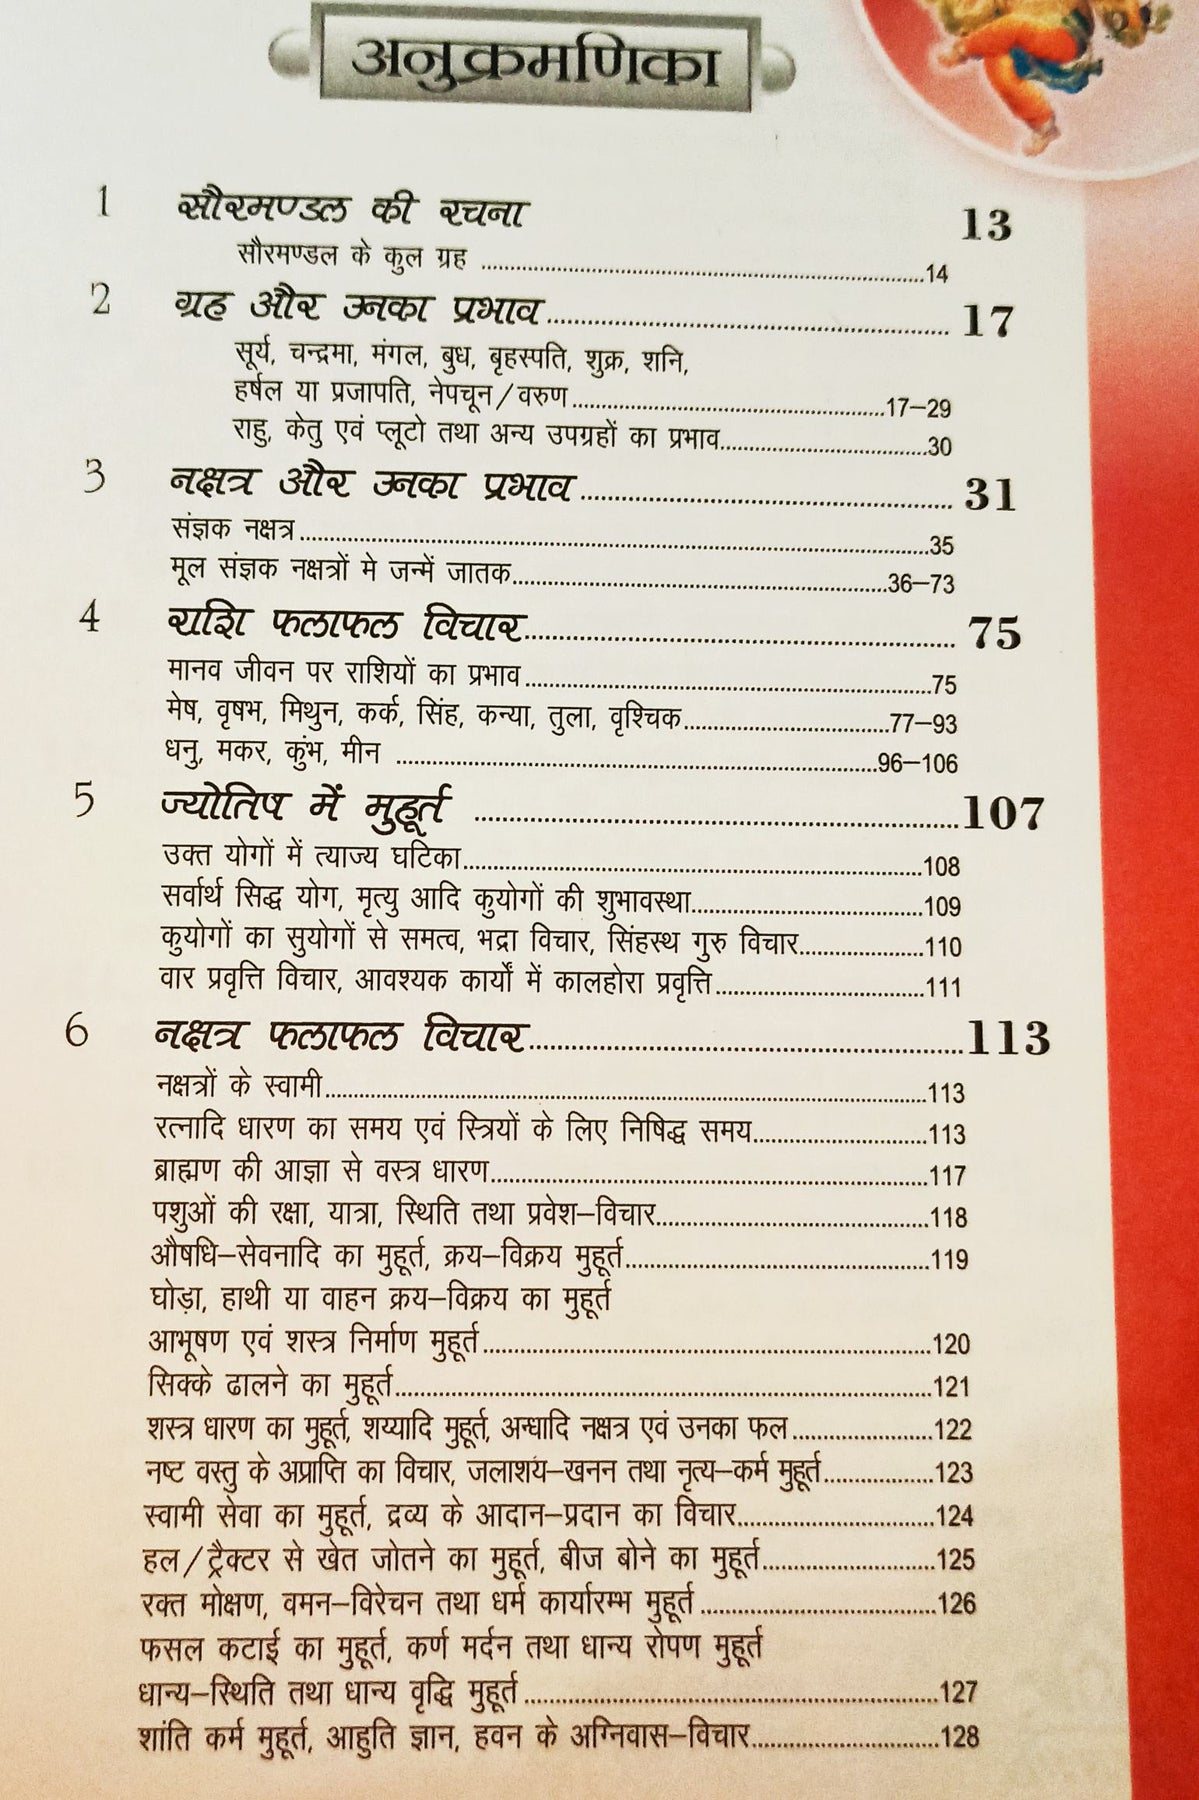 अनुक्रमणिका
1 सौरमण्डल की रचना 13
सौरमण्डल के कुल ग्रह ..........14
2 ग्रह और उनका प्रभाव.......... 17
सूर्य, चन्द्रमा, मंगल, बुध, बृहस्पति, शुक्र, शनि,
हर्षल या प्रजापति, नेपचून/वरुण..........17–29
राहु, केतु एवं प्लूटो तथा अन्य उपग्रहों का प्रभाव..........30
3 नक्षत्र और उनका प्रभाव.......... 31
संज्ञक नक्षत्र..........35
मूल संज्ञक नक्षत्रों मे जन्में जातक..........36–73
4 राशि फलाफल विचार.......... 75
मानव जीवन पर राशियों का प्रभाव..........75
मेष, वृषभ, मिथुन, कर्क, सिंह, कन्या, तुला, वृश्चिक..........77–93
धनु, मकर, कुंभ, मीन ..........96–106
5 ज्योतिष में मुहूर्त ..........107
उक्त योगों में त्याज्य घटिका..........108
सर्वार्थ सिद्ध योग, मृत्यु आदि कुयोगों की शुभावस्था..........109
कुयोगों का सुयोगों से समत्व, भद्रा विचार, सिंहस्थ गुरु विचार..........110
वार प्रवृत्ति विचार, आवश्यक कार्यों में कालहोरा प्रवृत्ति..........111
6 नक्षत्र फलाफल विचार..........113
नक्षत्रों के स्वामी..........113
रत्नादि धारण का समय एवं स्त्रियों के लिए निषिद्ध समय..........113
ब्राह्मण की आज्ञा से वस्त्र धारण..........117
पशुओं की रक्षा, यात्रा, स्थिति तथा प्रवेश–विचार..........118
औषधि–सेवनादि का मुहूर्त, क्रय–विक्रय मुहूर्त..........119
घोड़ा, हाथी या वाहन क्रय–विक्रय का मुहूर्त
आभूषण एवं शस्त्र निर्माण मुहूर्त..........120
सिक्के ढालने का मुहूर्त..........121
शस्त्र धारण का मुहूर्त, शय्यादि मुहूर्त, अन्धादि नक्षत्र एवं उनका फल..........122
नष्ट वस्तु के अप्राप्ति का विचार, जलाशय–खनन तथा नृत्य–कर्म मुहूर्त..........123
स्वामी सेवा का मुहूर्त, द्रव्य के आदान–प्रदान का विचार..........124
हल/ट्रैक्टर से खेत जोतने का मुहूर्त, बीज बोने का मुहूर्त..........125
रक्त मोक्षण, वमन–विरेचन तथा धर्म कार्यारम्भ मुहूर्त..........126
फसल कटाई का मुहूर्त, कर्ण मर्दन तथा धान्य रोपण मुहूर्त
धान्य–स्थिति तथा धान्य वृद्धि मुहूर्त..........127
शांति कर्म मुहूर्त, आहुति ज्ञान, हवन के अग्निवास–विचार..........128